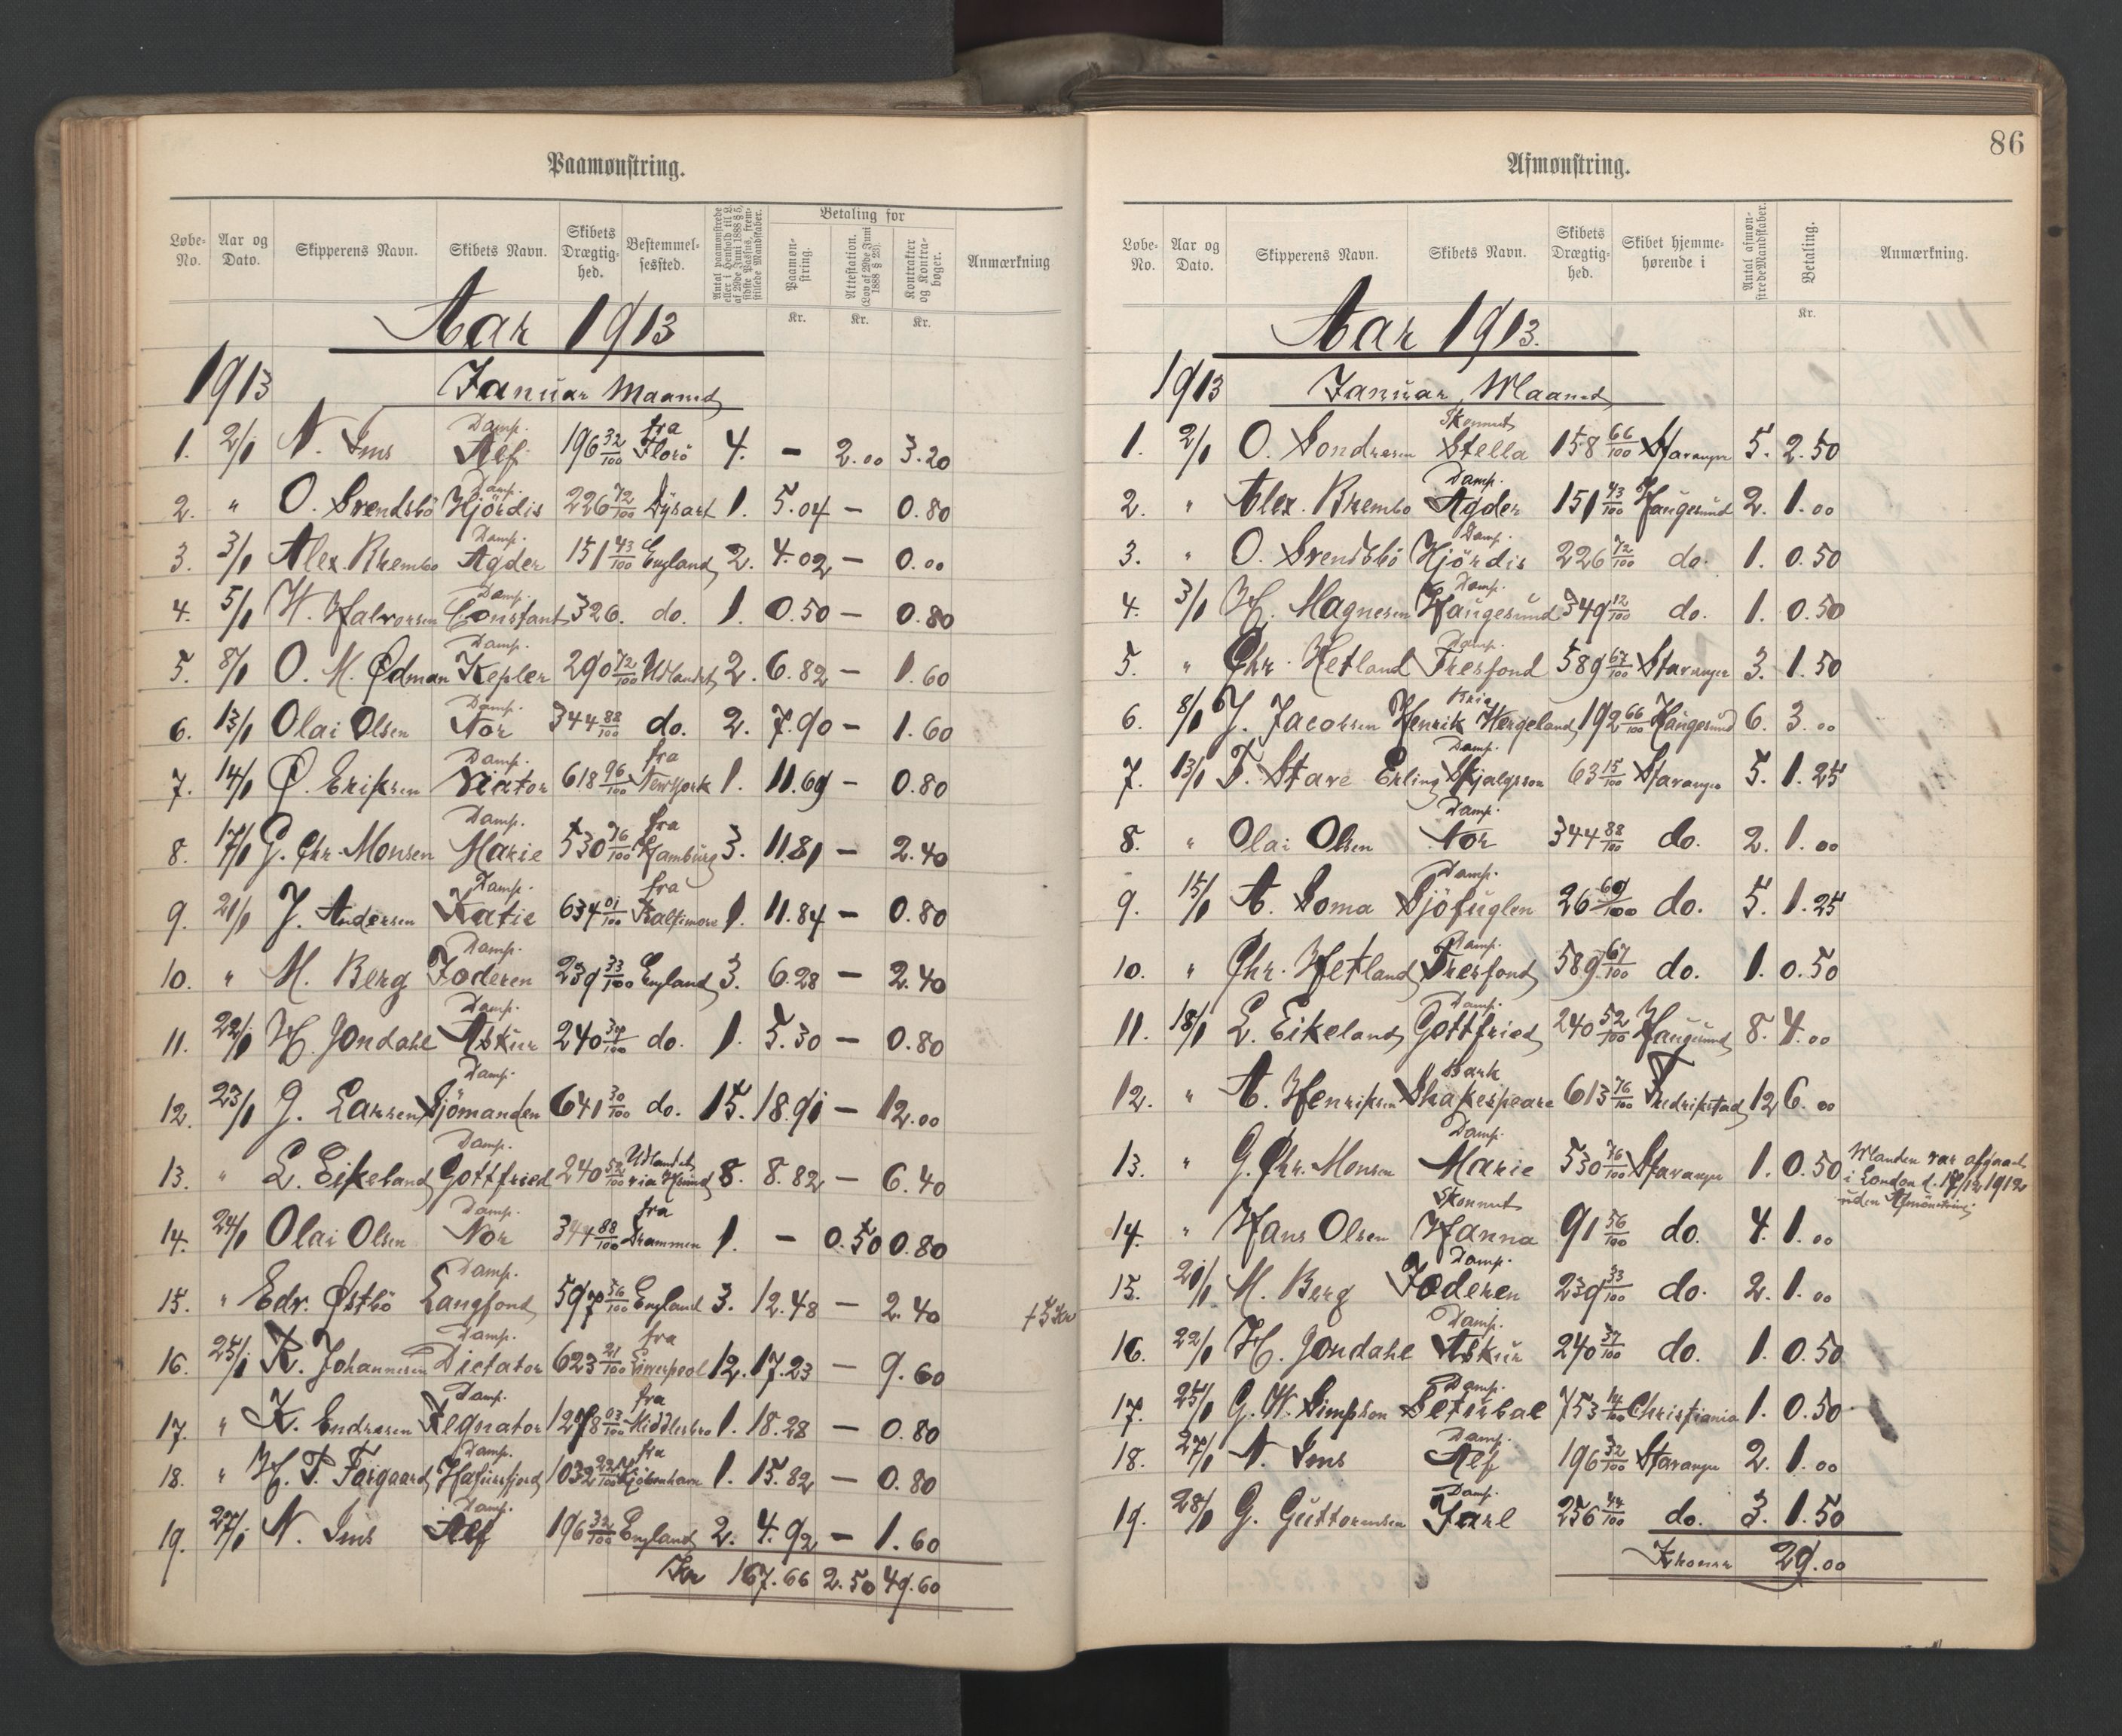 Paamønstring.
Løbe-No. Aar og Dato. Skipperens Navn. Skibets Navn. Skibets Drægtig-hed. Bestemmel-sessted. Antal paamønstrede eller i Henhold til L. af 29de Juni 1888 § 5, sidste Passus, frem-stillede Mandskaber. Betaling for Paamøn-string. Attestation. (Lov af 29de Juni 1888 § 23). Kontrakter og Kontra-bøger. Anmærkning
Kr. Kr. Kr.
Aar 1913
1913 Januar Maaned
1. 2/1 N. Ims Damp. Alf 196 32/100 fra Florö 4. - 2.00 3.20
2. " O. Svendsbö Damp. Hjördis 226 72/100 Dysart 1. 5.04 - 0.80
3. 3/1 Alex. Krembo Damp. Agder 151 43/100 England 2. 4.02 - 0.00
4. 5/1 H. Halvorsen Damp. Constant 326. do. 1. 0.50 - 0.80
5. 8/1 O. M. Ødman Damp. Kepler 290 72/100 Udlandet 2. 6.82 - 1.60
6. 13/1 Olai Olsen Damp. Nor 344 88/100 do. 2. 7.90 - 1.60
7. 14/1 O. Eriksen Damp. Viator 618 96/100 fra New York 1. 11.69 - 0.80
8. 17/1 G. Chr. Monsen Damp. Marie 530 76/100 fra Hamburg 3. 11.81 - 2.40
9. 21/1 J. Andersen Damp. Katie 634 01/100 fra Baltimore 1. 11.84 - 0.80
10. " M. Berg Damp. Jæderen 239 33/100 England 3. 6.28 - 2.40
11. 22/1 H. Jondahl Damp. Askur 240 37/100 do. 1. 5.30 - 0.80
12. 23/1 G. Larsen Damp. Sjömanden 641 30/100 do. 15. 18.91 - 12.00
13. " L. Eikeland Damp. Gottfried 240 52/100 Udlandet via Hsund 8. 8.82 - 6.40
14. 24/1 Olai Olsen Damp. Nor 344 88/100 fra Drammen 1. - 0.50 0.80
15. " Edv. Østbö Damp. Langfond 597 56/100 England 3. 12.48 - 2.40 + 5 Kr
16. 25/1 K. Johannesen Damp. Dictator 623 21/100 fra Liverpool 12. 17.23 - 9.60
17. " K. Endresen Damp. Regnator 1278 03/100 fra Middlesbro 1. 18.28 - 0.80
18. " H. T. Fargaard Damp. Hafursfjord 1032 22/100 fra Kjöbenhavn 1. 15.82 - 0.80
19. 27/1 N. Ims Damp. Alf 196 32/100 England 2. 4.92 - 1.60
Kr 167.66 2.50 49.60
86
Afmønstring.
Løbe-No. Aar og Dato. Skipperens Navn. Skibets Navn. Skibets Drægtig-hed. Skibet hjemme-hørende i Antal afmøn-strede Mandskaber. Betaling. Anmærkning.
Kr.
Aar 1913.
1913 Januar Maaned
1. 2/1 O. Sondresen Skonnert Stella 158 66/100 Stavanger 5. 2.50
2. " Alex. Krembo Damp. Agder 151 43/100 Haugesund 2. 1.00
3. " O. Svendsbö Damp. Hjördis 226 72/100 do. 1. 0.50
4. 3/1 H. Magnesen Damp. Haugesund 349 12/100 do. 1. 0.50
5. " Chr. Hetland Damp. Tresfond 589 67/100 Stavanger 3. 1.50
6. 8/1 J. Jacobsen Brig Henrik Wergeland 192 66/100 Haugesund 6. 3.00
7. 13/1 T. Stave Damp. Erling Skjalgsson 63 15/100 Stavanger 5. 1.25
8. " Olai Olsen Damp. Nor 344 88/100 do. 2. 1.00
9. 15/1 A. Soma Damp. Sjöfuglen 26 69/100 do. 5. 1.25
10. " Chr. Hetland Damp. Tresfond 589 67/100 do. 1. 0.50
11. 18/1 L. Eikeland Damp. Gottfried 240 52/100 Haugesund 8. 4.00
12. " A. Henriksen Bark Shakespeare 613 76/100 Fredrikstad 12 6.00
13. " G. Chr. Monsen Damp. Marie 530 76/100 Stavanger 1. 0.50 Manden var afgaaet i London d. 17/12 1912 uden Afmönstring
14. " Hans Olsen Skonnert Hanna 91 56/100 do. 4. 1.00
15. 21/1 M. Berg Damp. Jæderen 239 33/100 do. 2. 1.00
16. 22/1 H. Jondahl Damp. Askur 240 37/100 do. 1. 0.50
17. 25/1 G. W. Simpson Damp. Setubal 753 14/100 Christiania 1. 0.50
18. 27/1 N. Ims Damp. Alf 196 32/100 Stavanger 2. 1.00
19. 28/1 G. Guttormsen Damp. Jarl 256 44/100 do. 3. 1.50
Kroner 29.00